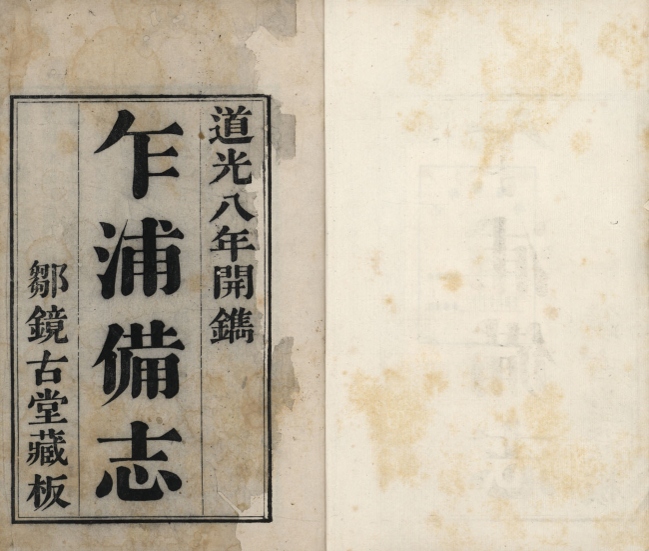 道光八年開鐫
乍浦備志
鄒鏡古堂藏板